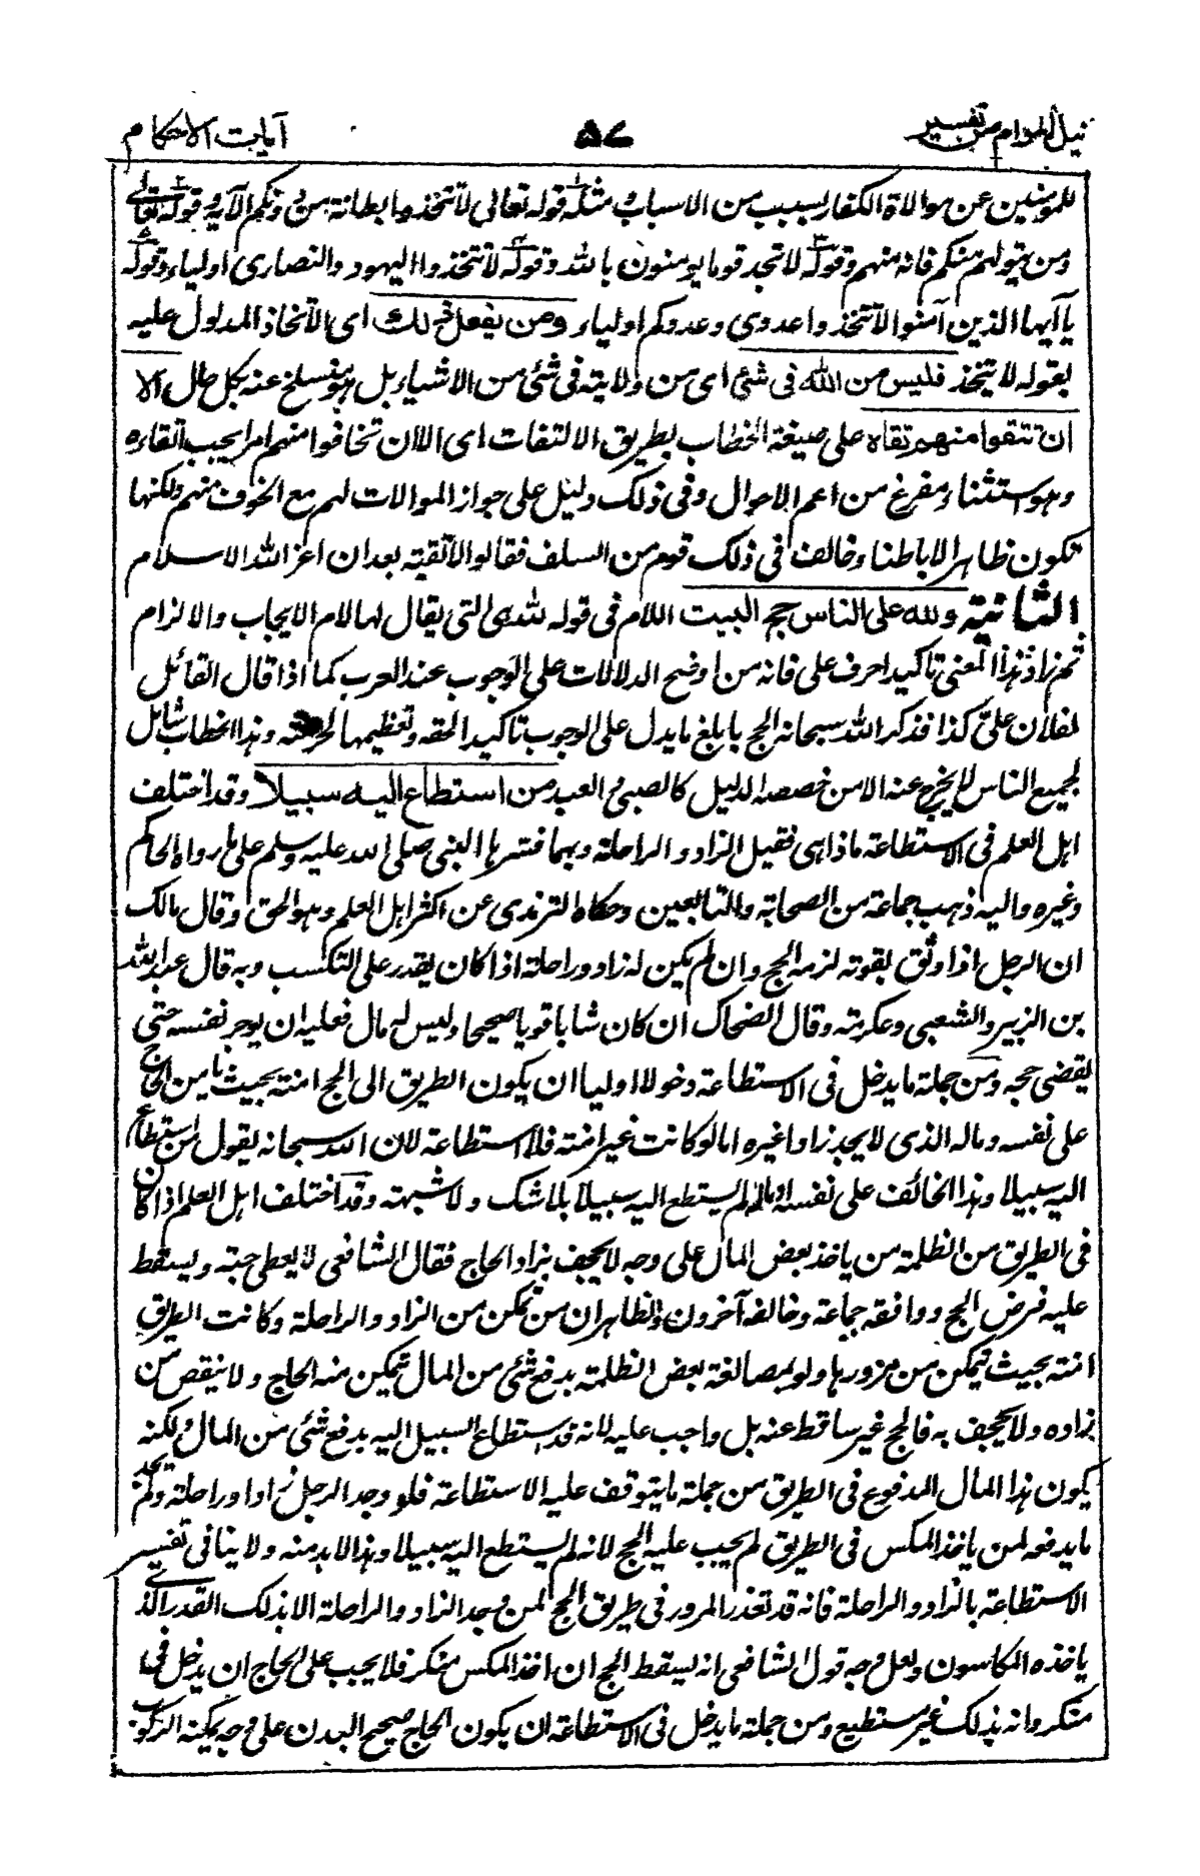 نيل المرام من تفسير ٥٧ آيات الاحكام
للمومنين عن موالاة الكفار بسبب من الاسباب و مثله قوله تعالى لا تتخذوا بطانة من دونكم الآية و قوله تعالى
ومن يتولهم منكم فانه منهم وقوله لا تجد قوما يومنون بالله وقوله لا تتخذوا اليهود والنصارى اولياء وقوله
يا ايها الذين آمنوا لا تتخذوا عدوي وعدوكم اولياء ومن يفعل ذلك اى الاتخاذ المدلول عليه
بقوله لا يتخذ فليس من الله فى شئ اى من ولايته فى شئ من الاشياء بل هو منسلخ عنه بكل حال الا
ان تتقوا منهم تقاه على صيغة الخطاب بطريق الالتفات اى الا ان تخافوا منهم امرا يجب اتقاءه
وهو استثناء مفرغ من اعم الاحوال وفى ذلك دليل على جواز الموالات لهم مع الخوف منهم ولكنها
تكون ظاهرا لا باطنا وخالف فى ذلك قوم من السلف فقالوا لا تقية بعد ان اعز الله الاسلام
الثانية ولله على الناس حج البيت اللام فى قوله لله هى التى يقال لها لام الايجاب والالزام
ثم زاد هذا المعنى تاكيدا حرف على فانه من اوضح الدلالات على الوجوب عند العرب كما اذا قال القائل
لفلان على كذا فذكر الله سبحانه الحج بابلغ ما يدل على الوجوب تاكيدا لحقه وتعظيما لحرمته وهذا الخطاب شامل
لجميع الناس لا يخرج عنه الا من خصصه الدليل كالصبى و العبد من استطاع اليه سبيلا وقد اختلف
اهل العلم فى الاستطاعة ماذا هى فقيل الزاد والراحلة وبهما فسرها النبى صلى الله عليه وسلم على ما رواه الحاكم
وغيره واليه ذهب جماعة من الصحابة والتابعين وحكاه الترمذى عن اكثر اهل العلم وهو الحق وقال مالك
ان الرجل اذا وثق بقوته لزمه الحج وان لم يكن له زاد وراحلة اذا كان يقدر على التكسب وبه قال عبد الله
بن الزبير والشعبى وعكرمته وقال الضحاك ان كان شابا قويا صحيحا وليس له مال فعليه ان يوجر نفسه حتى
يقضى حجه ومن جملة ما يدخل فى الاستطاعة دخولا اوليا ان يكون الطريق الى الحج امنة بحيث يا من الحاج
على نفسه وماله الذى لا يجد زادا غيره اما لو كانت غير امنة فلا استطاعة لان الله سبحانه يقول من استطاع
اليه سبيلا وهذا الخائف على نفسه او ماله لم يستطع اليه سبيلا بلا شك ولا شبهته وقد اختلف اهل العلم اذا كان
فى الطريق من الظلمة من ياخذ بعض المال على وجه لا يجحف بزاد الحاج فقال الشافعى لا يعطى حبته ويسقط
عليه فرض الحج ووافقه جماعة وخالفه آخرون والظاهر ان من تمكن من الزاد والراحلة وكانت الطريق
امنة بحيث يتمكن من مرورها ولو بمصالغة بعض الظلمته بدفع شئ من المال يتمكن منه الحاج ولا ينقص من
زاده ولا يجحف به فالحج غير ساقط عنه بل واجب عليه لانه قد استطاع السبيل اليه بدفع شئ من المال ولكنه
يكون هذا المال المدفوع فى الطريق من جملة ما يتوقف عليه الاستطاعة فلو وجد الرجل زادا وراحلة ولم يجد
ما يدفعه لمن ياخذ المكس فى الطريق لم يجب عليه الحج لانه لم يستطع اليه سبيلا وهذا لابد منه ولا ينافى تفسير
الاستطاعة بالزاد والراحلة فانه قد تعذر المرور فى طريق الحج لمن وجد الزاد والراحلة الا بذلك القدر الذى
ياخذه المكاسون ولعل وجه قول الشافعى انه يسقط الحج ان اخذ المكس منكر فلا يجب على الحاج ان يدخل فى
منكر وانه بذلك غير مستطيع ومن جملة ما يدخل فى الاستطاعة ان يكون الحاج صحيح البدن على وجه يمكنه الركوب